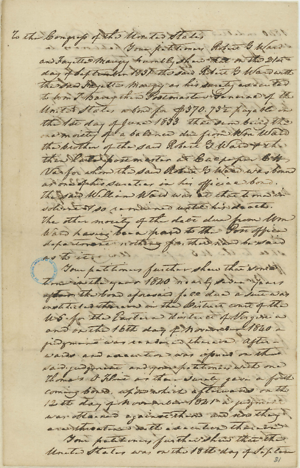 To the Congress of the United States
Your petitioners Robert G Ward
and Fayette Mauzy humbly shew that on the 21st
day of September 1831 the said Robert G Ward with
the said Fayette Mauzy as his surety executed
to Postmaster General of the
United States a bond for $370.73 payable on
the 1st day of June 1833 that sum being the
moiety of a balance due from Wm Ward
the brother of the said Robert G Ward &
then late postmaster at Culpeper C.H.
Va for whom the said Robert G Ward was bound
as one of his sureties in his official bond.
the said William Ward was at that time in-
solvent & so until his death.
The other moiety of the debt due from Wm
Ward having been paid to the Post office
department nothing further need be said
as to it.
Your petitioners further shew that some
time in the year 1840 nearly seven years
after the bond aforesaid fell due a suit was
instituted thereon in the District court of the
US. for the Eastern district of Virginia
and on the 16th day of November 1840 a
judgment was rendered therein. After-
wards an execution was issued on this
said judgment and your petitioners with one
Thomas O Flint as their surety gave a forth
coming bond, upon which afterwards on the
12th day of November 1841 a judgment
was obtained against them and now they
are threatened with execution thereon
Your petitioners further shew that the
United States was on the 18th day of Septem